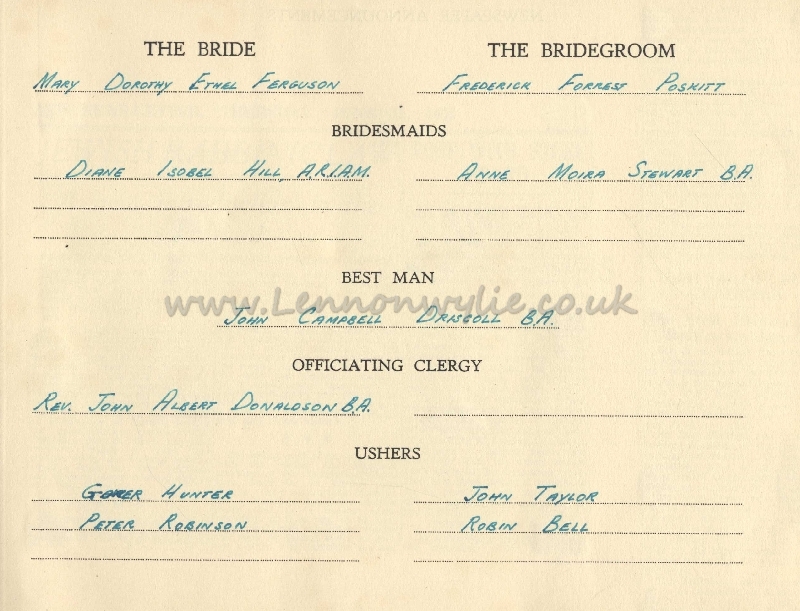 THE BRIDE
THE BRIDEGROOM
Mary Dorothy Ethel Ferguson
Frederick Forrest Poskitt
BRIDESMAIDS
Diane Isobel Hill, A.R.I.A.M.
Anne Moira Stewart B.A.
BEST MAN
www.Lennonwylie.co.uk
John Campbell Driscoll B.A.
OFFICIATING CLERGY
Rev. John Albert Donaldson B.A.
USHERS
Hunter
John Taylor
Peter Robinson
Robin Bell